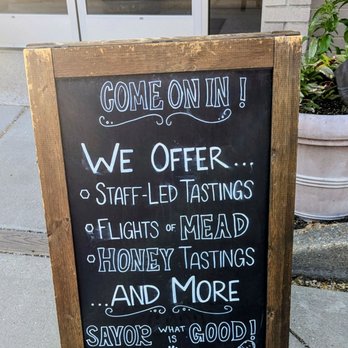 COME ON IN!
WE OFFER...
STAFF-LED TASTINGS
FLIGHTS OF MEAD
HONEY TASTINGS
...AND MORE
SAVOR WHAT IS GOOD!